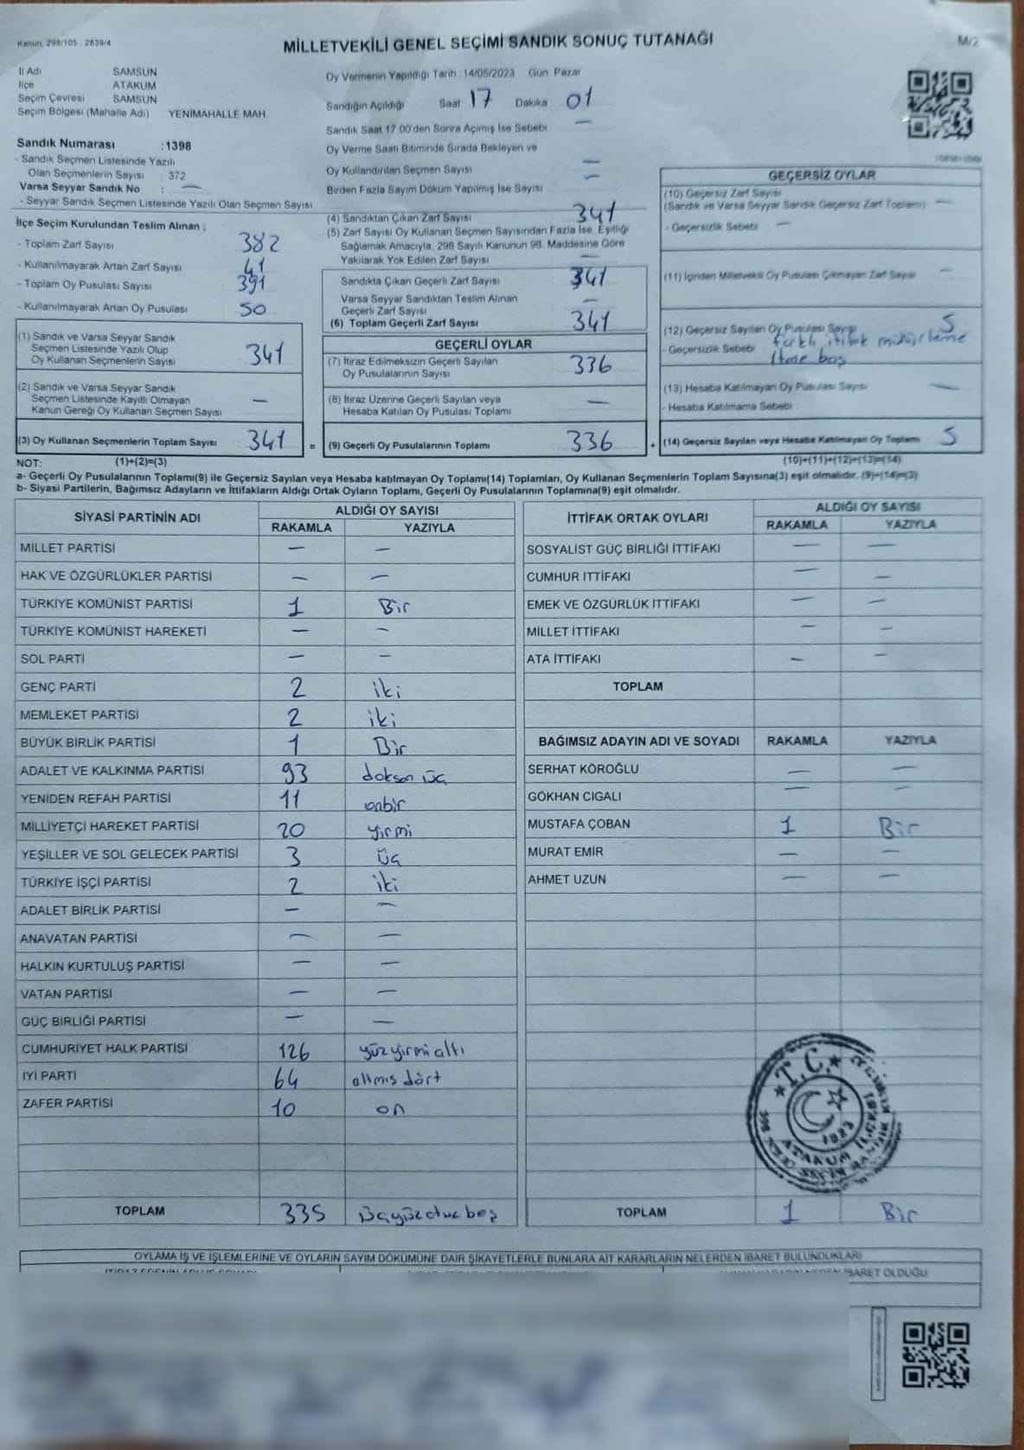 Kanun, 298/105 - 2839/4
MİLLETVEKİLİ GENEL SEÇİMİ SANDIK SONUÇ TUTANAĞI
M/2
İl Adı SAMSUN
İlçe ATAKUM
Seçim Çevresi SAMSUN
Seçim Bölgesi (Mahalle Adı) YENİMAHALLE MAH.
Oy Vermenin Yapıldığı Tarih 14/05/2023 Gün Pazar
Sandığın Açıldığı Saat 17 Dakika 01
Sandık Saat 17.00'den Sonra Açımış İse Sebebi —
Oy Verme Saati Bitiminde Sırada Bekleyen ve
Oy Kullandırılan Seçmen Sayısı —
Birden Fazla Sayım Döküm Yapılmış İse Sayısı —
Sandık Numarası :1398
- Sandık Seçmen Listesinde Yazılı
Olan Seçmenlerin Sayısı : 372
Varsa Seyyar Sandık No : —
- Seyyar Sandık Seçmen Listesinde Yazılı Olan Seçmen Sayısı
İlçe Seçim Kurulundan Teslim Alınan ;
- Toplam Zarf Sayısı 382
- Kullanılmayarak Artan Zarf Sayısı 41
- Toplam Oy Pusulası Sayısı 391
- Kullanılmayarak Artan Oy Pusulası 50
(1) Sandık ve Varsa Seyyar Sandık
Seçmen Listesinde Yazılı Olup
Oy Kullanan Seçmenlerin Sayısı 341
(2) Sandık ve Varsa Seyyar Sandık
Seçmen Listesinde Kayıtlı Olmayan
Kanun Gereği Oy Kullanan Seçmen Sayısı —
(3) Oy Kullanan Seçmenlerin Toplam Sayısı 341 =
(4) Sandıktan Çıkan Zarf Sayısı 341
(5) Zarf Sayısı Oy Kullanan Seçmen Sayısından Fazla İse, Eşitliği
Sağlamak Amacıyla, 298 Sayılı Kanunun 98. Maddesine Göre
Yakılarak Yok Edilen Zarf Sayısı —
Sandıkta Çıkan Geçerli Zarf Sayısı 341
Varsa Seyyar Sandıktan Teslim Alınan
Geçerli Zarf Sayısı —
(6) Toplam Geçerli Zarf Sayısı 341
GEÇERLİ OYLAR
(7) İtiraz Edilmeksizin Geçerli Sayılan
Oy Pusulalarının Sayısı 336
(8) İtiraz Üzerine Geçerli Sayılan veya
Hesaba Katılan Oy Pusulası Toplamı —
(9) Geçerli Oy Pusulalarının Toplamı 336 +
GEÇERSİZ OYLAR
(10) Geçersiz Zarf Sayısı
(Sandık ve Varsa Seyyar Sandık Geçersiz Zarf Toplamı) —
- Geçersizlik Sebebi —
(11) İçinden Milletvekili Oy Pusulası Çıkmayan Zarf Sayısı —
(12) Geçersiz Sayılan Oy Pusulası Sayısı 5
- Geçersizlik Sebebi farklı itifak mühürleme
1 tane boş
(13) Hesaba Katılmayan Oy Pusulası Sayısı —
- Hesaba Katılmama Sebebi
(14) Geçersiz Sayılan veya Hesaba Katılmayan Oy Toplamı 5
NOT: (1)+(2)=(3) (10)+(11)+(12)+(13)=(14)
a- Geçerli Oy Pusulalarının Toplamı(9) ile Geçersiz Sayılan veya Hesaba katılmayan Oy Toplamı(14) Toplamları, Oy Kullanan Seçmenlerin Toplam Sayısına(3) eşit olmalıdır. (9)+(14)=(3)
b- Siyasi Partilerin, Bağımsız Adayların ve İttifakların Aldığı Ortak Oyların Toplamı, Geçerli Oy Pusulalarının Toplamına(9) eşit olmalıdır.
SİYASİ PARTİNİN ADI ALDIĞI OY SAYISI
RAKAMLA YAZIYLA
MİLLET PARTİSİ — —
HAK VE ÖZGÜRLÜKLER PARTİSİ — —
TÜRKİYE KOMÜNİST PARTİSİ 1 Bir
TÜRKİYE KOMÜNİST HAREKETİ — —
SOL PARTİ — —
GENÇ PARTİ 2 iki
MEMLEKET PARTİSİ 2 iki
BÜYÜK BİRLİK PARTİSİ 1 Bir
ADALET VE KALKINMA PARTİSİ 93 doksan üç
YENİDEN REFAH PARTİSİ 11 onbir
MİLLİYETÇİ HAREKET PARTİSİ 20 yirmi
YEŞİLLER VE SOL GELECEK PARTİSİ 3 üç
TÜRKİYE İŞÇİ PARTİSİ 2 iki
ADALET BİRLİK PARTİSİ — —
ANAVATAN PARTİSİ — —
HALKIN KURTULUŞ PARTİSİ — —
VATAN PARTİSİ — —
GÜÇ BİRLİĞİ PARTİSİ — —
CUMHURİYET HALK PARTİSİ 126 yüzyirmialtı
İYİ PARTİ 64 altmış dört
ZAFER PARTİSİ 10 on
TOPLAM 335 üçyüzotuz beş
İTTİFAK ORTAK OYLARI ALDIĞI OY SAYISI
RAKAMLA YAZIYLA
SOSYALİST GÜÇ BİRLİĞİ İTTİFAKI — —
CUMHUR İTTİFAKI — —
EMEK VE ÖZGÜRLÜK İTTİFAKI — —
MİLLET İTTİFAKI — —
ATA İTTİFAKI — —
TOPLAM
BAĞIMSIZ ADAYIN ADI VE SOYADI RAKAMLA YAZIYLA
SERHAT KÖROĞLU — —
GÖKHAN CIGALI — —
MUSTAFA ÇOBAN 1 Bir
MURAT EMİR — —
AHMET UZUN — —
T.C.
1923
ATAKUM İLÇESİ
TOPLAM 1 Bir
OYLAMA İŞ VE İŞLEMLERİNE VE OYLARIN SAYIM DÖKÜMÜNE DAİR ŞİKAYETLERLE BUNLARA AİT KARARLARIN NELERDEN İBARET BULUNDUKLARI
İBARET OLDUĞU